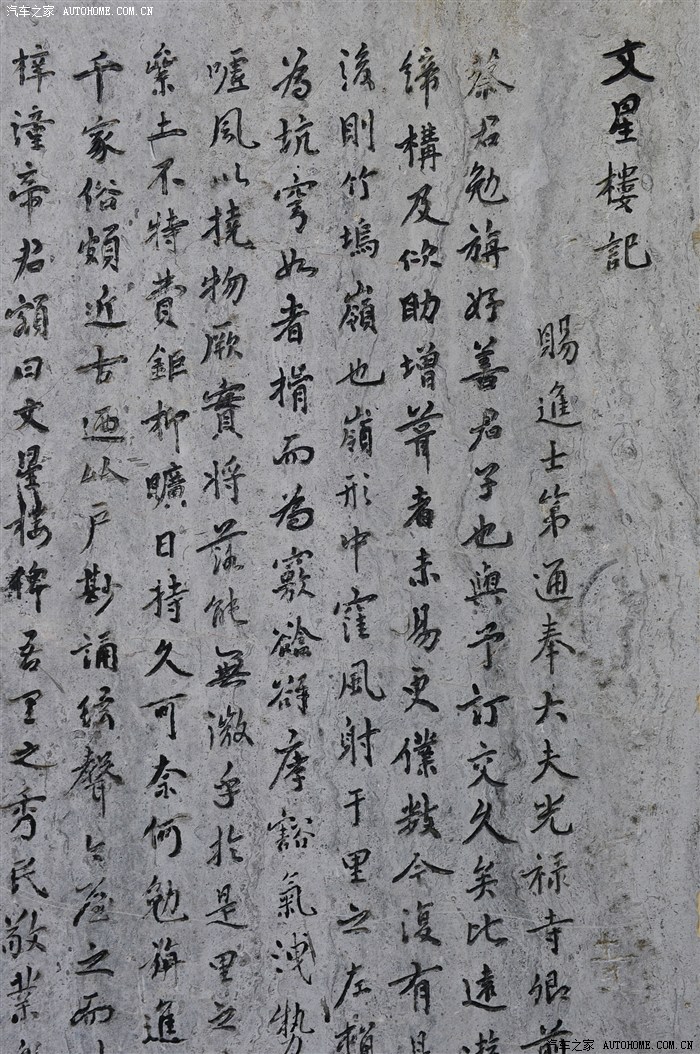 文星樓記
賜進士第通奉大夫光祿寺卿前
蔡君勉旃好善君子也與予訂交久矣比遠遊
締構及佽助增葺者未易更僕數今復有
後則竹塢嶺也嶺形中窪風射于里之左
為坑穹如者揹而為竅谽谺庨豁氣洩勢
噓風以撓物厥實將落能無微乎於是里之
絫土不特費鉅抑曠日持久可奈何勉旃進
千家俗頗近古迺以戶尠誦絃聲
梓潼帝君額曰文星樓俾吾里之秀民敬業
汽车之家 AUTOHOME.COM.CN
汽车之家 AUTOHOME.COM.CN